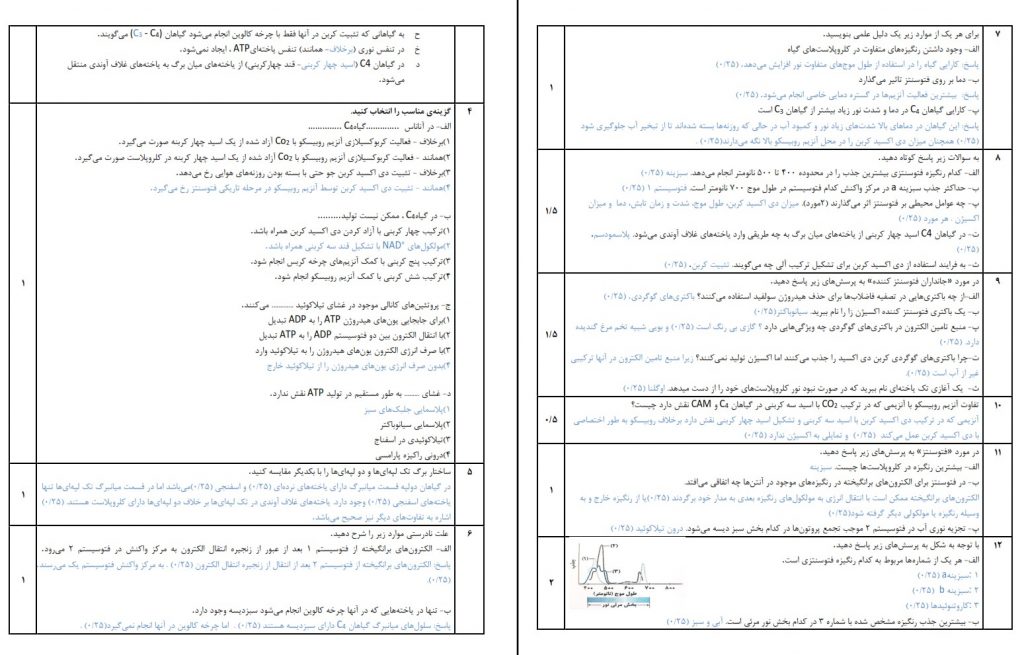 ۷
برای هر یک از موارد زیر یک دلیل علمی بنویسید.
الف- وجود داشتن رنگیزه‌های متفاوت در کلروپلاست‌های گیاه
پاسخ: کارایی گیاه را در استفاده از طول موج‌های متفاوت نور افزایش می‌دهد. (۰/۲۵)
ب- دما بر روی فتوسنتز تاثیر می‌گذارد
پاسخ: بیشترین فعالیت آنزیم‌ها در گستره دمایی خاصی انجام می‌شود. (۰/۲۵)
۱
پ- کارایی گیاهان C₄ در دما و شدت نور زیاد بیشتر از گیاهان C₃ است
پاسخ: این گیاهان در دماهای بالا شدت‌های زیاد نور و کمبود آب در حالی که روزنه‌ها بسته شده‌اند تا از تبخیر آب جلوگیری شود
(۰/۲۵) همچنان میزان دی اکسید کربن را در محل آنزیم روبیسکو بالا نگه می‌دارند(۰/۲۵) .
۸
به سوالات زیر پاسخ کوتاه دهید.
الف- کدام رنگیزه فتوسنتزی بیشترین جذب را در محدوده ۴۰۰ تا ۵۰۰ نانومتر انجام می‌دهد. سبزینه (۰/۲۵)
ب- حداکثر جذب سبزینه a در مرکز واکنش کدام فتوسیستم در طول موج ۷۰۰ نانومتر است. فتوسیستم ۱ (۰/۲۵)
پ- چه عوامل محیطی بر فتوسنتز اثر می‌گذارند (۲مورد). میزان دی اکسید کربن، طول موج، شدت و زمان تابش، دما و میزان
اکسیژن . هر مورد (۰/۲۵)
۱/۵
ت- در گیاهان C4 اسید چهار کربنی از یاخته‌های میان برگ به چه طریقی وارد یاخته‌های غلاف آوندی می‌شود. پلاسمودسم.
(۰/۲۵)
ث- به فرایند استفاده از دی اکسید کربن برای تشکیل ترکیب آلی چه می‌گویند. تثبیت کربن. (۰/۲۵)
۹
در مورد «جانداران فتوسنتز کننده» به پرسش‌های زیر پاسخ دهید.
الف-از چه باکتری‌هایی در تصفیه فاضلاب‌ها برای حذف هیدروژن سولفید استفاده می‌کنند؟ باکتری‌های گوگردی. (۰/۲۵)
ب- یک باکتری فتوسنتز کننده اکسیژن زا را نام ببرید. سیانوباکتر(۰/۲۵)
پ- منبع تامین الکترون در باکتری‌های گوگردی چه ویژگی‌هایی دارد ؟ گازی بی رنگ است (۰/۲۵) و بویی شبیه تخم مرغ گندیده
دارد. (۰/۲۵)
۱/۵
ت-چرا باکتری‌های گوگردی کربن دی اکسید را جذب می‌کنند اما اکسیژن تولید نمی‌کنند؟ زیرا منبع تامین الکترون در آنها ترکیبی
غیر از آب است (۰/۲۵).
ث- یک آغازی تک یاخته‌ای نام ببرید که در صورت نبود نور کلروپلاست‌های خود را از دست میدهد. اوگلنا (۰/۲۵)
۱۰
تفاوت آنزیم روبیسکو با آنزیمی که در ترکیب CO₂ با اسید سه کربنی در گیاهان C₄ و CAM نقش دارد چیست؟
آنزیمی که در ترکیب دی اکسید کربن با اسید سه کربنی و تشکیل اسید چهار کربنی نقش دارد برخلاف روبیسکو به طور اختصاصی
با دی اکسید کربن عمل می‌کند (۰/۲۵) و تمایلی به اکسیژن ندارد (۰/۲۵)
۰/۵
۱۱
در مورد «فتوسنتز» به پرسش‌های زیر پاسخ دهید.
الف- بیشترین رنگیزه در کلروپلاست‌ها چیست. سبزینه
ب- در فتوسنتز برای الکترون‌های برانگیخته در رنگیزه‌های موجود در آنتن‌ها چه اتفاقی می‌افتد.
الکترون‌های برانگیخته ممکن است با انتقال انرژی به مولکول‌های رنگیزه بعدی به مدار خود برگردند (۰/۲۵)یا از رنگیزه خارج و به
وسیله رنگیزه یا مولکولی دیگر گرفته شود(۰/۲۵)
۱
پ- تجزیه نوری آب در فتوسیستم ۲ موجب تجمع پروتون‌ها در کدام بخش سبز دیسه می‌شود. درون تیلاکوئید (۰/۲۵)
۱۲
با توجه به شکل به پرسش‌های زیر پاسخ دهید.
الف- هر یک از شماره‌ها مربوط به کدام رنگیزه فتوسنتزی است.
۱ :سبزینهa (۰/۲۵)
۲ :سبزینه b (۰/۲۵)
۳ :کاروتنوئیدها (۰/۲۵)
ب- بیشترین جذب رنگیزه مشخص شده با شماره ۳ در کدام بخش نور مرئی است. آبی و سبز (۰/۲۵)
۲
جذب
(۱)
(۲)
(۳)
۴۰۰ ۵۰۰ ۶۰۰ ۷۰۰ ۸۰۰
طول موج (نانومتر)
بخش مرئی نور
ح به گیاهانی که تثبیت کربن در آنها فقط با چرخه کالوین انجام می‌شود گیاهان (C₃ - C₄) می‌گویند.
خ در تنفس نوری (برخلاف- همانند) تنفس یاخته‌ایATP ، ایجاد نمی‌شود.
د در گیاهان C4 (اسید چهار کربنی- قند چهارکربنی) از یاخته‌های میان برگ به یاخته‌های غلاف آوندی منتقل
می‌شود.
۴
گزینه‌ی مناسب را انتخاب کنید.
الف- در آناناس ..............گیاهC₄ ..............
۱)برخلاف - فعالیت کربوکسیلازی آنزیم روبیسکو با Co₂ آزاد شده از یک اسید چهار کربنه صورت می‌گیرد.
۲)همانند - فعالیت کربوکسیلازی آنزیم روبیسکو با Co₂ آزاد شده از یک اسید چهار کربنه در کلروپلاست صورت می‌گیرد.
۳)برخلاف - تثبیت دی اکسید کربن جو حتی با بسته بودن روزنه‌های هوایی رخ می‌دهد.
۴)همانند - تثبیت دی اکسید کربن توسط آنزیم روبیسکو در مرحله تاریکی فتوسنتز رخ می‌گیرد.
ب- در گیاهC₄ ، ممکن نیست تولید.........
۱)ترکیب چهار کربنی با آزاد کردن دی اکسید کربن همراه باشد.
۲)مولکول‌های NAD⁺ با تشکیل قند سه کربنی همراه باشد.
۳)ترکیب پنج کربنی با کمک آنزیم‌های چرخه کربس انجام شود.
۴)ترکیب شش کربنی با کمک آنزیم روبیسکو انجام شود.
۱
ج- پروتئین‌های کانالی موجود در غشای تیلاکوئید .......... می‌کنند.
۱)برای جابجایی یون‌های هیدروژن ATP را به ADP تبدیل
۲)با انتقال الکترون بین دو فتوسیستم ADP را به ATP تبدیل
۳)با صرف انرژی الکترون یون‌های هیدروژن را به تیلاکوئید وارد
۴)بدون صرف انرژی یون‌های هیدروژن را از تیلاکوئید خارج
د- غشای ....... به طور مستقیم در تولید ATP نقش ندارد.
۱)پلاسمایی جلبک‌های سبز
۲)پلاسمایی سیانوباکتر
۳)تیلاکوئیدی در اسفناج
۴)درونی راکیزه پارامسی
۵
ساختار برگ تک لپه‌ای‌ها و دو لپه‌ای‌ها را با یکدیگر مقایسه کنید.
در گیاهان دولپه قسمت میانبرگ دارای یاخته‌های نرده‌ای (۰/۲۵) و اسفنجی (۰/۲۵)می‌باشد اما در قسمت میانبرگ تک لپه‌ای‌ها تنها
یاخته‌های اسفنجی (۰/۲۵) وجود دارد. یاخته‌های غلاف آوندی در تک لپه‌ای‌ها بر خلاف دو لپه‌ای‌ها دارای کلروپلاست هستند. (۰/۲۵)
اشاره به تفاوت‌های دیگر نیز صحیح می‌باشد.
۱
۶
علت نادرستی موارد زیر را شرح دهید.
الف- الکترون‌های برانگیخته از فتوسیستم ۱ بعد از عبور از زنجیره انتقال الکترون به مرکز واکنش در فتوسیستم ۲ می‌رود.
پاسخ: الکترون‌های برانگیخته از فتوسیستم ۲ بعد از انتقال از زنجیره انتقال الکترون (۰/۲۵) . به مرکز واکنش فتوسیستم یک می‌رسند.
(۰/۲۵).
۱
ب- تنها در یاخته‌هایی که در آنها چرخه کالوین انجام می‌شود سبزدیسه وجود دارد.
پاسخ: سلول‌های میانبرگ گیاهان C₄ دارای سبزدیسه هستند (۰/۲۵) . اما چرخه کالوین در آنها انجام نمی‌گیرد(۰/۲۵) .